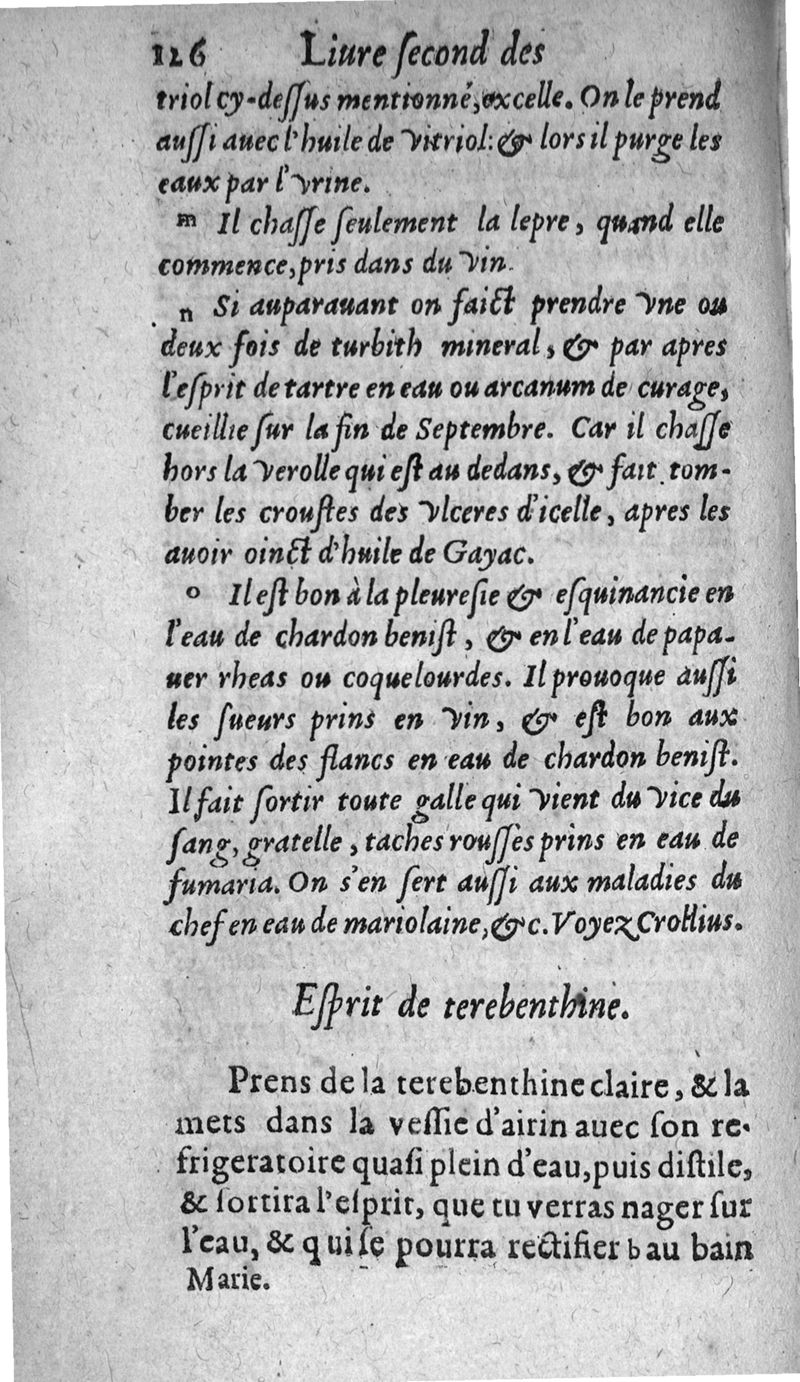 126 Liure ſecond des
triol cy-deſſus mentionné, excelle. On le prend
auſſi auec l'huile de Vitriol: & lors il purge les
eaux par l'Vrine.
m Il chaſſe ſeulement la lepre, quand elle
commence, pris dans du Vin.
n Si auparauant on faict prendre Vne ou
deux fois de turbith mineral, & par apres
l'eſprit de tartre en eau ou arcanum de curage,
cueillie ſur la fin de Septembre. Car il chaſſe
hors la Verolle qui eſt au dedans, & fait tom-
ber les crouſtes des Vlceres d'icelle, apres les
auoir oinct d'huile de Gayac.
o Il eſt bon à la pleureſie & eſquinancie en
l'eau de chardon beniſt, & en l'eau de papa-
uer rheas ou coquelourdes. Il prouoque auſſi
les ſueurs prins en Vin, & eſt bon aux
pointes des flancs en eau de chardon beniſt.
Il fait ſortir toute galle qui Vient du Vice du
ſang, gratelle, taches rouſſes prins en eau de
fumaria. On s'en ſert auſſi aux maladies du
chef en eau de mariolaine, &c. Voyez Crollius.
Eſprit de terebenthine.
Prens de la terebenthine claire, & la
mets dans la veſſie d'airin auec ſon re-
frigeratoire quaſi plein d'eau, puis diſtile,
& ſortira l'eſprit, que tu verras nager ſur
l'eau, & qui ſe pourra rectifier b au bain
Marie.